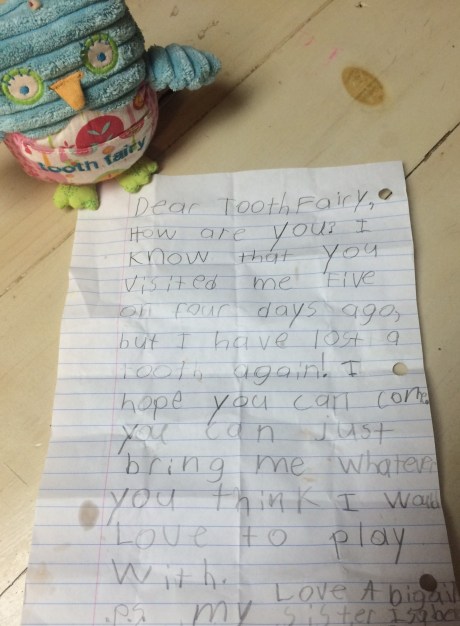 tooth fairy
Dear ToothFairy,
How are you? I
know that you
visited me Five
or Four days ago,
but I have lost a
tooth again! I
hope you can come.
you can just
bring me whatever
you think I
Love to play
with.
Love Abigail
p.s my sister